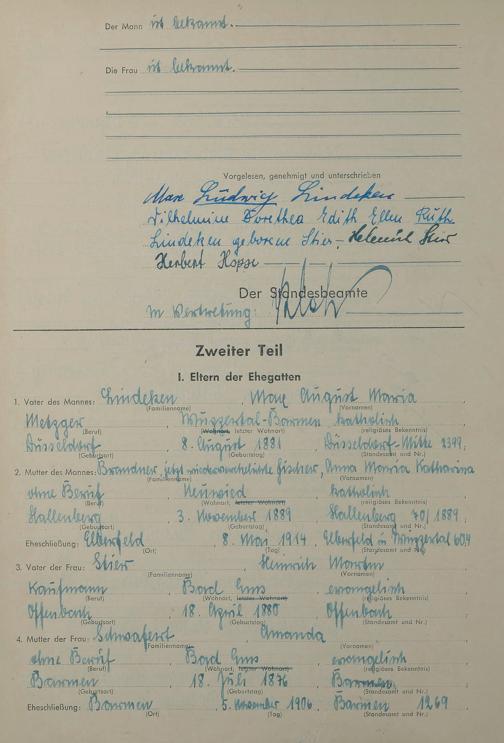 Der Mann ist bekannt.
Die Frau ist bekannt.
Vorgelesen, genehmigt und unterschrieben
Max Ludwig Lindeken
Wilhelmine Dorothea Edith Ellen Ruth
Lindeken geborene Stier, Helmut Stier
Herbert Hoppe
Der Standesbeamte
In Vertretung:
Zweiter Teil
I. Eltern der Ehegatten
1. Vater des Mannes: Lindeken, Max August Maria
(Familienname) (Vornamen)
Metzger, Wuppertal-Barmen, katholisch
(Beruf) (Wohnort, letzter Wohnort) (religiöses Bekenntnis)
Düsseldorf, 8. August 1881, Düsseldorf-Mitte 2399,
(Geburtsort) (Geburtstag) (Standesamt und Nr.)
2. Mutter des Mannes: Brandner, jetzt wiederverehelichte Fischer, Anna Maria Katharina
(Familienname) (Vornamen)
ohne Beruf, Neuwied, katholisch
(Beruf) (Wohnort, letzter Wohnort) (religiöses Bekenntnis)
Hallenberg, 3. November 1889, Hallenberg 70/1889,
(Geburtsort) (Geburtstag) (Standesamt und Nr.)
Eheschließung: Elberfeld, 8. Mai 1914, Elberfeld in Wuppertal 604
(Ort) (Tag) (Standesamt und Nr.)
3. Vater der Frau: Stier, Heinrich Martin
(Familienname) (Vornamen)
Kaufmann, Bad Ems, evangelisch
(Beruf) (Wohnort, letzter Wohnort) (religiöses Bekenntnis)
Offenbach, 18. April 1880, Offenbach
(Geburtsort) (Geburtstag) (Standesamt und Nr.)
4. Mutter der Frau: Schwafert, Amanda
(Familienname) (Vornamen)
ohne Beruf, Bad Ems, evangelisch
(Beruf) (Wohnort, letzter Wohnort) (religiöses Bekenntnis)
Barmen, 18. Juli 1876, Barmen,
(Geburtsort) (Geburtstag) (Standesamt und Nr.)
Eheschließung: Barmen, 5. November 1906, Barmen 1269
(Ort) (Tag) (Standesamt und Nr.)